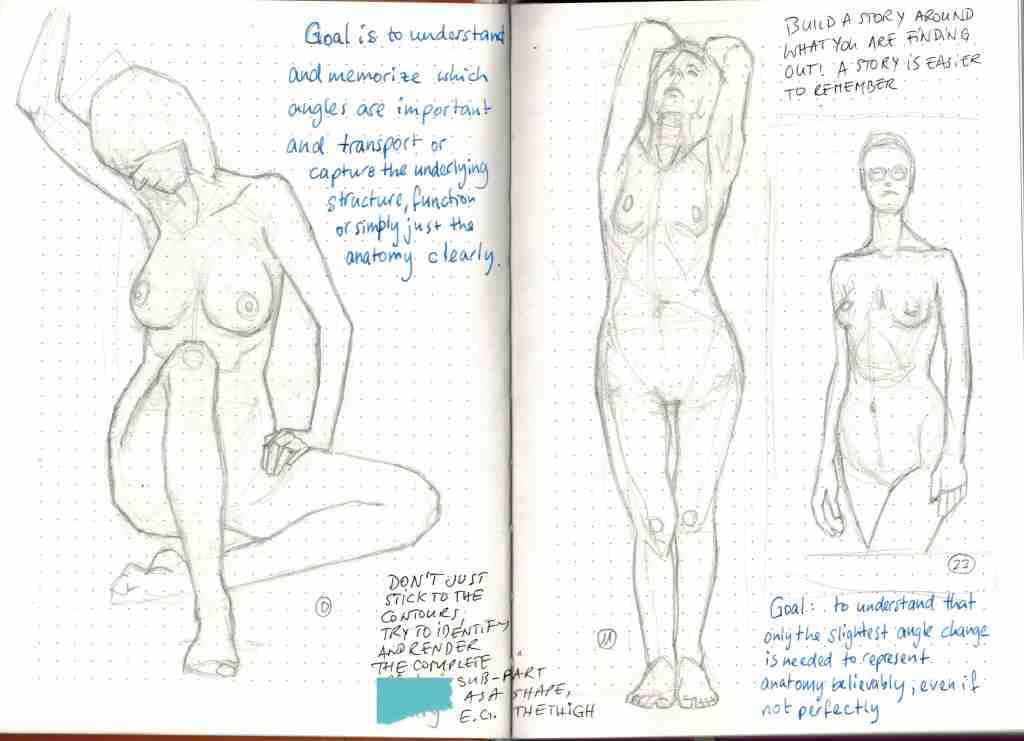 Goal is to understand
and memorize which
angles are important
and transport or
capture the underlying
structure, function
or simply just the
anatomy clearly.
DON'T JUST
STICK TO THE
CONTOURS,
TRY TO IDENTIFY
AND RENDER
THE COMPLETE
SUB-PART
AS A SHAPE,
E.G. THE THIGH
0
BUILD A STORY AROUND
WHAT YOU ARE FINDING
OUT! A STORY IS EASIER
TO REMEMBER
23
Goal: to understand that
only the slightest angle change
is needed to represent
anatomy believably; even if
not perfectly